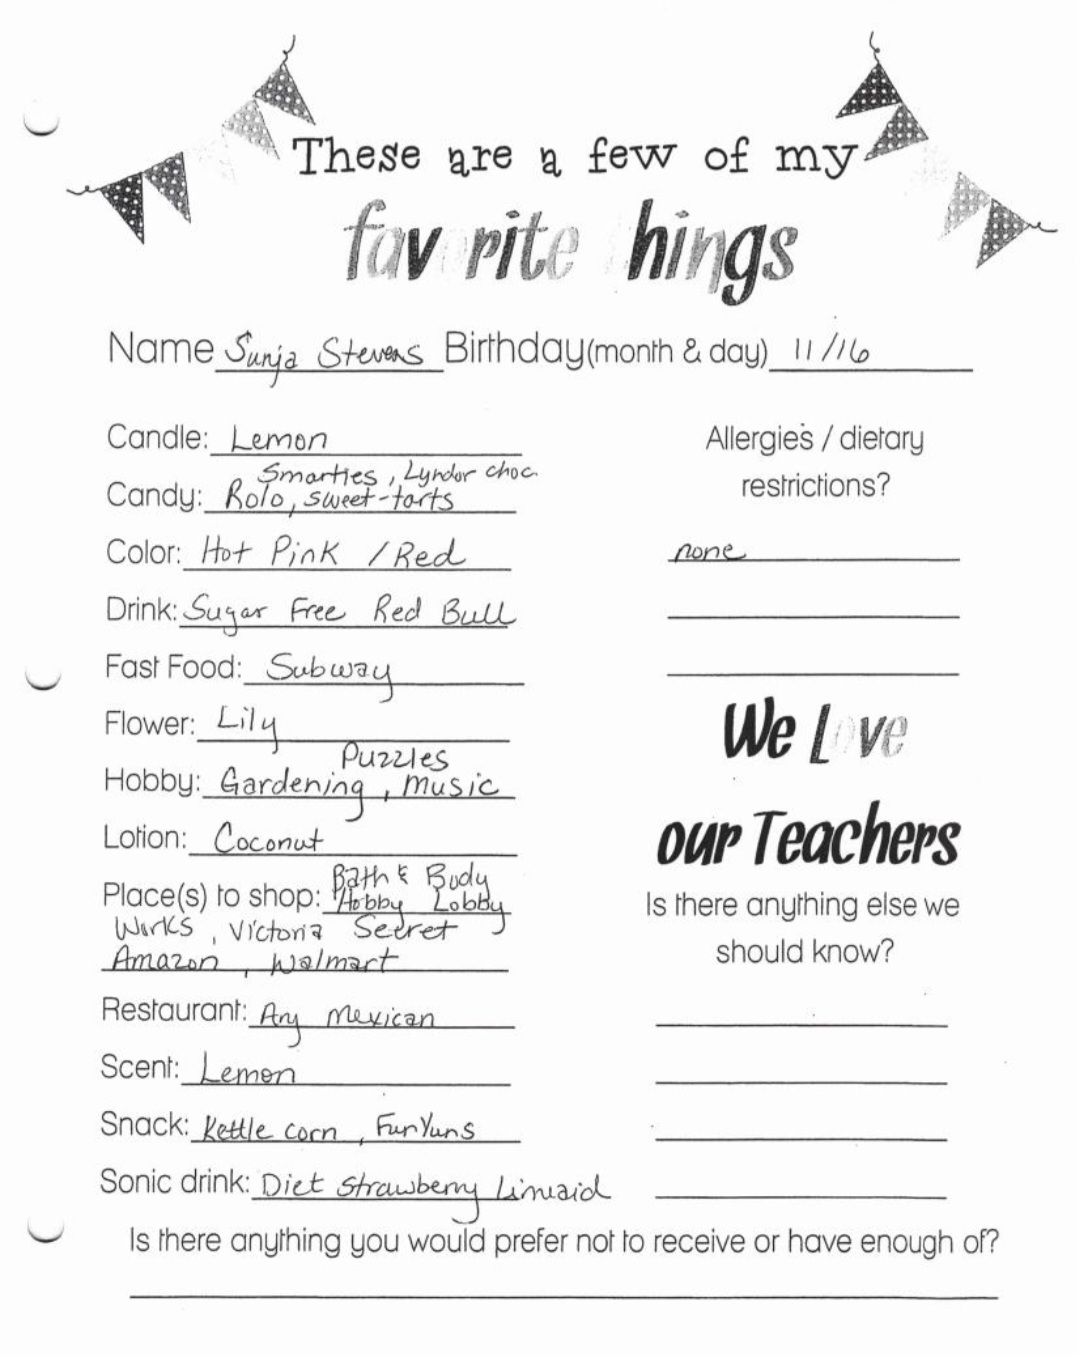 These are a few of my
fav rite hings
Name Sunja Stevens Birthday(month & day) 11/16
Candle: Lemon
Smarties, Lyndor choc
Candy: Rolo, sweet-tarts
Color: Hot Pink / Red
Drink: Sugar Free Red Bull
Fast Food: Subway
Flower: Lily
Puzzles
Hobby: Gardening, Music
Lotion: Coconut
Bath & Body
Place(s) to shop: Hobby Lobby
Works, Victoria Secret
Amazon, Walmart
Restaurant: Any Mexican
Scent: Lemon
Snack: Kettle corn, FunYuns
Sonic drink: Diet Strawberry Limeaid
Allergies / dietary
restrictions?
none
We Love
our Teachers
Is there anything else we
should know?
Is there anything you would prefer not to receive or have enough of?